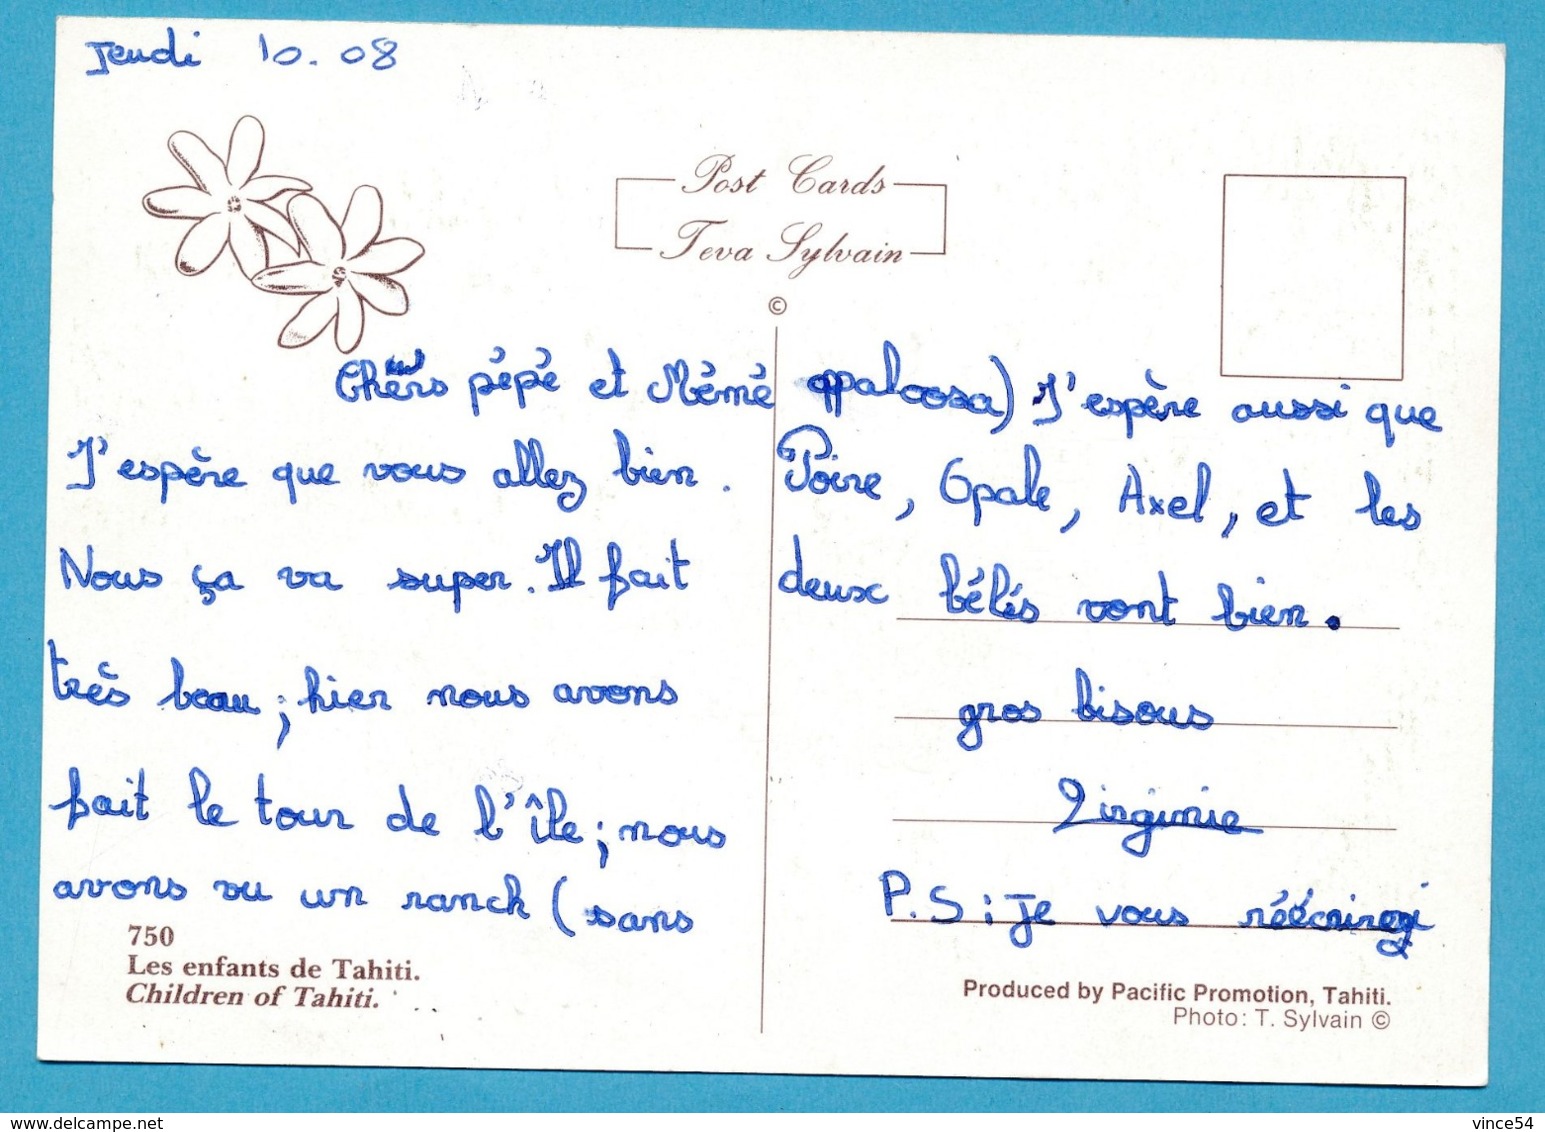 Jeudi 10.08
Post Cards
Teva Sylvain
©
Chers pépé et Mémé
J'espère que vous allez bien.
Nous ça va super. Il fait
très beau ; hier nous avons
fait le tour de l'île ; nous
avons vu un ranch (sans
750
Les enfants de Tahiti.
Children of Tahiti.
appaloosa) J'espère aussi que
Poire, Opale, Axel, et les
deux bébés vont bien.
gros bisous
Virginie
P.S : Je vous réécrirez
Produced by Pacific Promotion, Tahiti.
Photo: T. Sylvain ©
delcampe.net
vince54